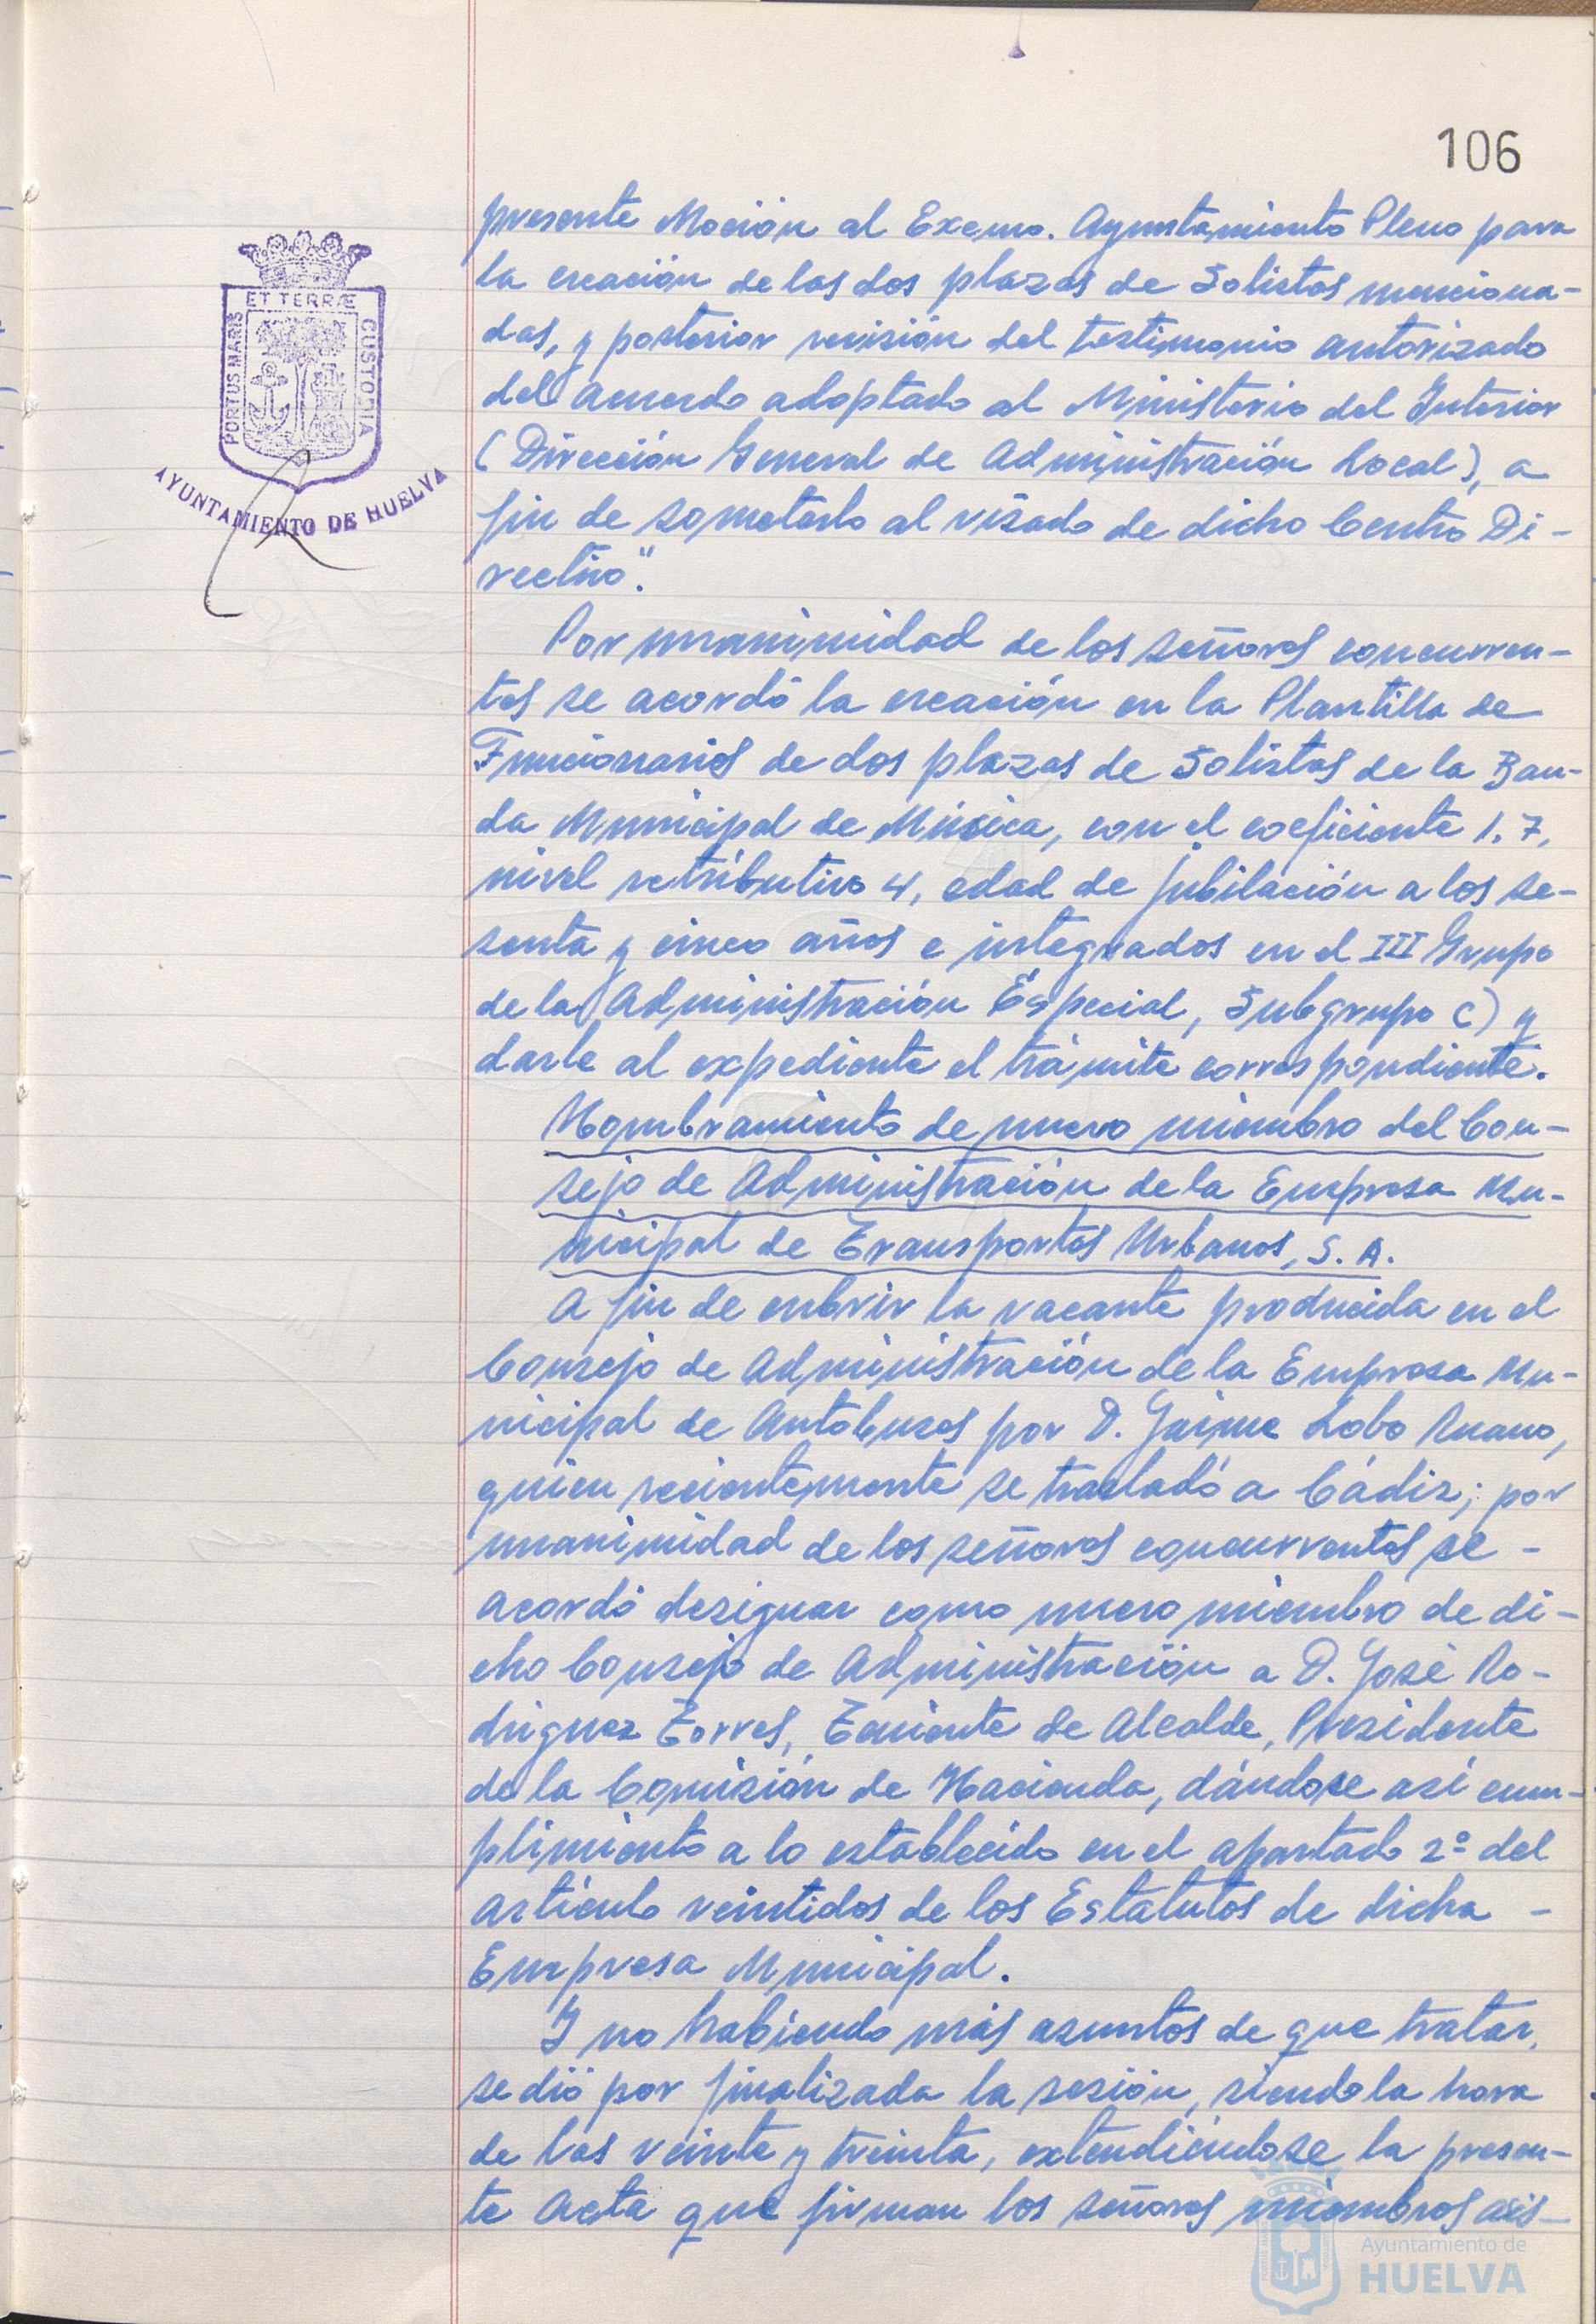 106
ET TERRÆ
PORTUS MARIS
CUSTODIA
AYUNTAMIENTO DE HUELVA
presente Moción al Excmo. Ayuntamiento Pleno para
la creación de las dos plazas de Solistas menciona-
das, y posterior remisión del testimonio autorizado
del acuerdo adoptado al Ministerio del Interior
(Dirección General de Administración Local), a
fin de someterlo al visado de dicho Centro Di-
rectivo".
Por unanimidad de los señores concurren-
tes se acordó la creación en la Plantilla de
Funcionarios de dos plazas de Solistas de la Ban-
da Municipal de Música, con el coeficiente 1.7,
nivel retributivo 4, edad de jubilación a los se-
senta y cinco años e integrados en el III Grupo
de la Administración Especial, Subgrupo C) y
darle al expediente el trámite correspondiente.
Nombramiento de nuevo miembro del Con-
sejo de Administración de la Empresa Mu-
nicipal de Transportes Urbanos, S. A.
A fin de cubrir la vacante producida en el
Consejo de Administración de la Empresa Mu-
nicipal de Autobuses por D. Jaime Lobo Ruano,
quien recientemente se trasladó a Cádiz; por
unanimidad de los señores concurrentes se -
acordó designar como nuevo miembro de di-
cho Consejo de Administración a D. José Ro-
driguez Torres, Teniente de Alcalde, Presidente
de la Comisión de Hacienda, dándose así cum-
plimiento a lo establecido en el apartado 2º del
artículo veintidos de los Estatutos de dicha -
Empresa Municipal.
Y no habiendo más asuntos de que tratar,
se dió por finalizada la sesión, siendo la hora
de las veinte y treinta, extendiéndose la presen-
te Acta que firman los señores miembros asis-
Ayuntamiento de
HUELVA